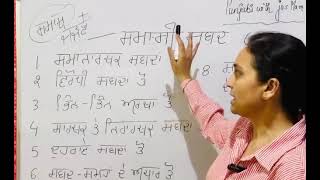 Punjabi with jas Mam
ਸਮਾਸ
ਸਮਾਸੀ ਸ਼ਬਦ
1 ਸਮਾਨਾਰਥਕ ਸ਼ਬਦਾਂ
2 ਵਿਰੋਧੀ ਸ਼ਬਦਾਂ ਤੋਂ
3 ਭਿੰਨ-ਭਿੰਨ ਅਰਥਾਂ ਤੋਂ
4 ਸਾਰਥਕ ਤੇ ਨਿਰਾਰਥਕ ਸ਼ਬਦਾਂ
5 ਦੁਹਰਾਓ ਸ਼ਬਦਾਂ ਤੋਂ
6 ਸ਼ਬਦ-ਸਮੂਹ ਦੇ ਅਧਾਰ ਤੋਂ
8